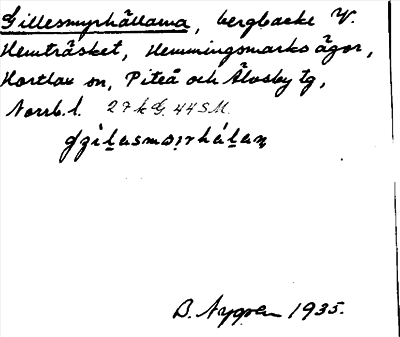 Gillesmyrhällarna, bergbacke V.
Hemträsket, Hemmingsmarks ägor,
Hortlax sn, Piteå och Älvsby tg,
Norrb. l. 27k G. 44 S.M.
B. Nygren 1935.